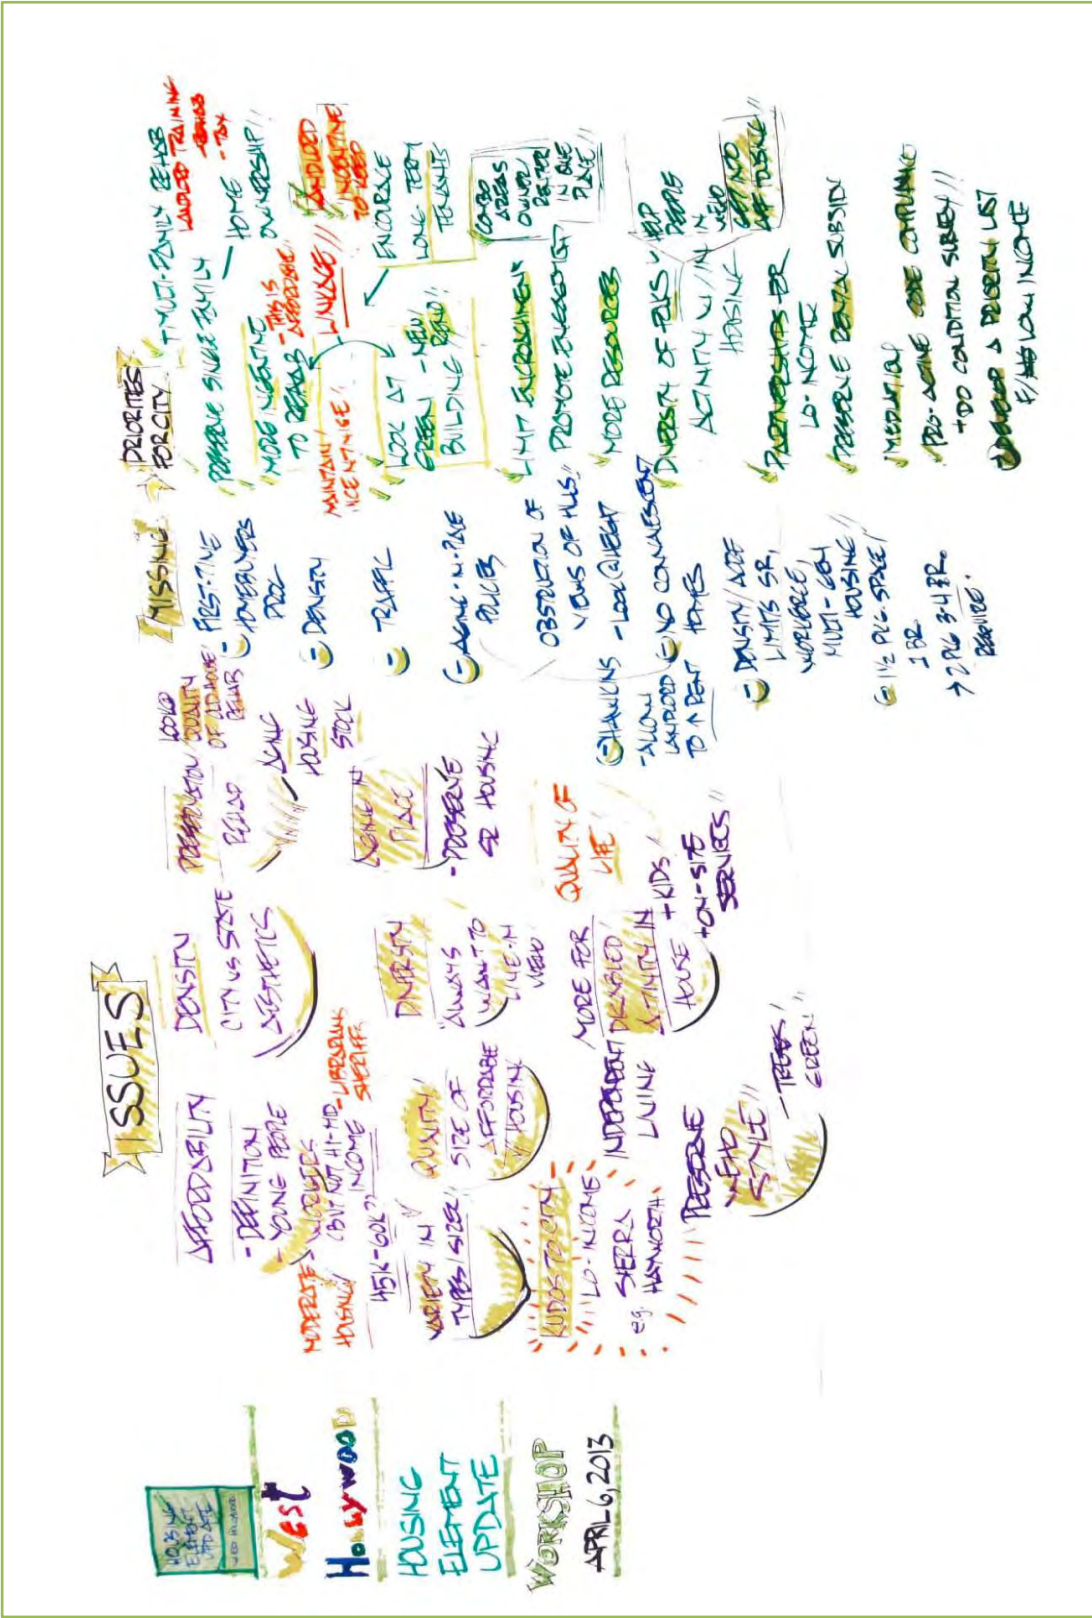 HOUSING
ELEMENT
UPDATE
WEST HOLLYWOOD
West
HOLLYWOOD
HOUSING
ELEMENT
UPDATE
WORKSHOP
APRIL 6, 2013
ISSUES
AFFORDABILITY
- DEFINITION
- YOUNG PEOPLE
MODERATE
HOUSING
WORKERS
(BUT NOT HI-MID
INCOME
45K-60K?)
- LIBRARIANS
SHERIFF
VARIETY IN
TYPES/SIZE!!
QUALITY/
SIZE OF
AFFORDABLE
HOUSING
KUDOS TO CITY
LO-INCOME
e.g. SIERRA
HAYWORTH
INDEPENDENT
LIVING
PRESERVE
WEHO
STYLE!!
- TREES!
GREEN!!
DENSITY
CITY VS STATE
AESTHETICS
DIVERSITY
ALWAYS
WANT TO
LIVE-IN
WEHO
MORE FOR
DISABLED!
ACTIVITY IN
HOUSE
+ KIDS!
+ON-SITE
SERVICES!!
PRESERVATION
REHAB
LOOK@
QUALITY
OF OLD HOUSE/
REHAB
AGING
HOUSING
STOCK
AGING IN
PLACE
- PRESERVE
SR HOUSING
QUALITY OF
LIFE
MISSING
- FIRST-TIME
HOMEBUYERS
PROG
- DENSITY
- TRAFFIC
- AGING-IN-PLACE
POLICIES
OBSTRUCTION OF
VIEWS OF HILLS!!
- LOOK@HEIGHT
HAWKINS
- ALLOW
LANDLORD
TO ↑ RENT
NO CONVALESCENT
HOMES
- DENSITY/
LIMITS SR,
WORKFORCE,
MULTI-GEN
HOUSING!!
1 1/2 PKG. SPACE/
1 BR
→ 2 PKG 3-4 BR.
REQUIRE.
PRIORITIES
FOR CITY
MULTI-FAMILY REHAB
LANDLORD TRAINING
- REHAB
- TAX
PRESERVE SINGLE FAMILY
- HOME
OWNERSHIP!!
MORE INCENTIVE
TO REHAB
- THIS IS
AFFORDABLE!
MAINTAIN/
INCENTIVISE!
LINKAGE!!
LANDLORD
INCENTIVE
TO KEEP
LOOK AT
GREEN - NEW/
BUILDING REHAB!!
ENCOURAGE
LONG TERM
TENANTS
LIMIT ENCROACHMENT
COMBO
AREAS
OWNER/
RENTER
IN ONE
PLACE!!
PROMOTE
MORE RESOURCES
DIVERSITY OF FOLKS
ACTIVITY W/IN
HOUSING
KEEP
PEOPLE
IN
WEHO
AFF HOUSING!!
PARTNERSHIPS FOR
LO-INCOME
PRESERVE RENTAL SUBSIDY
MEDIATION
CODE COMPLIANCE
+ DO CONDITION SURVEY!!
DEVELOP A PRIORITY LIST
F/ LOW INCOME